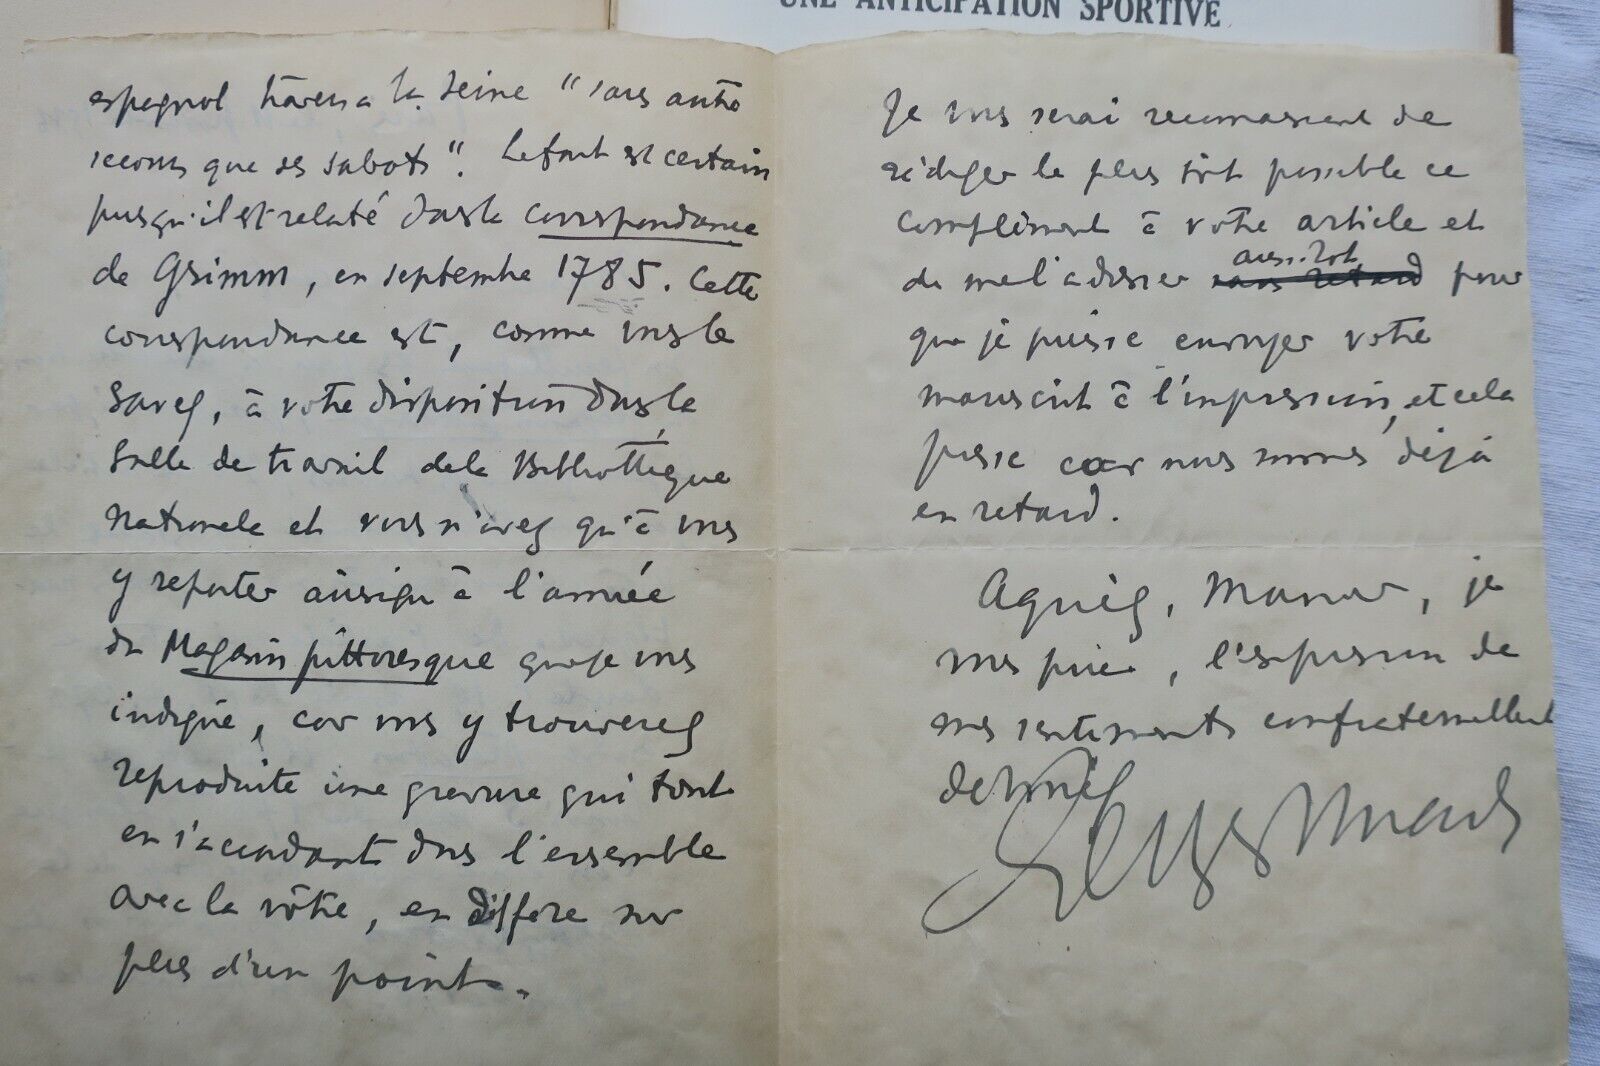 UNE ANTICIPATION SPORTIVE
espagnol traversa la Seine "sans autre
secours que ses sabots". Le fait est certain
puisqu'il est relaté dans la Correspondance
de Grimm, en septembre 1785. Cette
correspondance est, comme vous le
savez, à votre disposition dans la
Salle de travail de la Bibliothèque
nationale et vous n'avez qu'à vous
y reporter ainsi qu'à l'année
du Magasin pittoresque que je vous
indique, car vous y trouverez
reproduite une gravure qui tout
en s'accordant dans l'ensemble
avec la vôtre, en diffère sur
plus d'un point.
Je vous serai reconnaissant de
rédiger le plus tôt possible ce
complément à votre article et
de me l'adresser sans retard aussitôt pour
que je puisse envoyer votre
manuscrit à l'impression, et cela
presse car nous sommes déjà
en retard.
Agréez, Monsieur, je
vous prie, l'expression de
mes sentiments confraternellement
dévoués